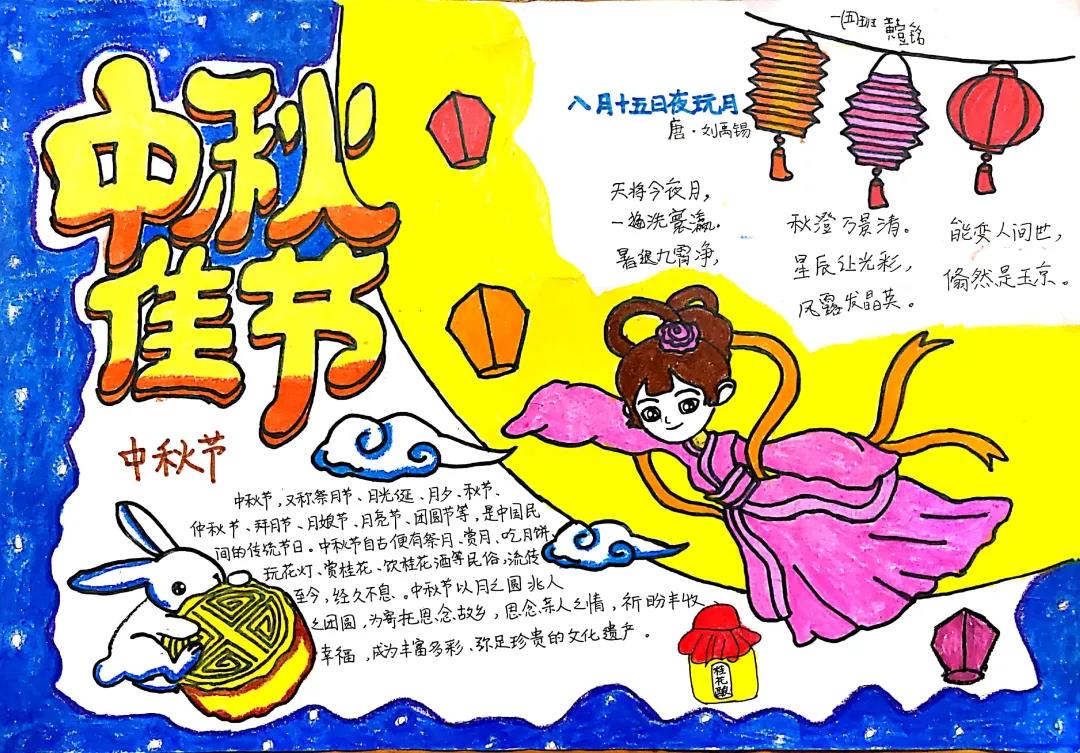 中秋
佳节
一(五)班 黄萱铭
八月十五日夜玩月
唐·刘禹锡
天将今夜月，
一遍洗寰瀛。
暑退九霄净，
秋澄万景清。
星辰让光彩，
风露发晶英。
能变人间世，
翛然是玉京。
中秋节
中秋节，又称祭月节、月光诞、月夕、秋节、
仲秋节、拜月节、月娘节、月亮节、团圆节等，是中国民
间的传统节日。中秋节自古便有祭月、赏月、吃月饼、
玩花灯、赏桂花、饮桂花酒等民俗，流传
至今，经久不息。中秋节以月之圆兆人
之团圆，为寄托思念故乡，思念亲人之情，祈盼丰收、
幸福，成为丰富多彩、弥足珍贵的文化遗产。
桂花酿